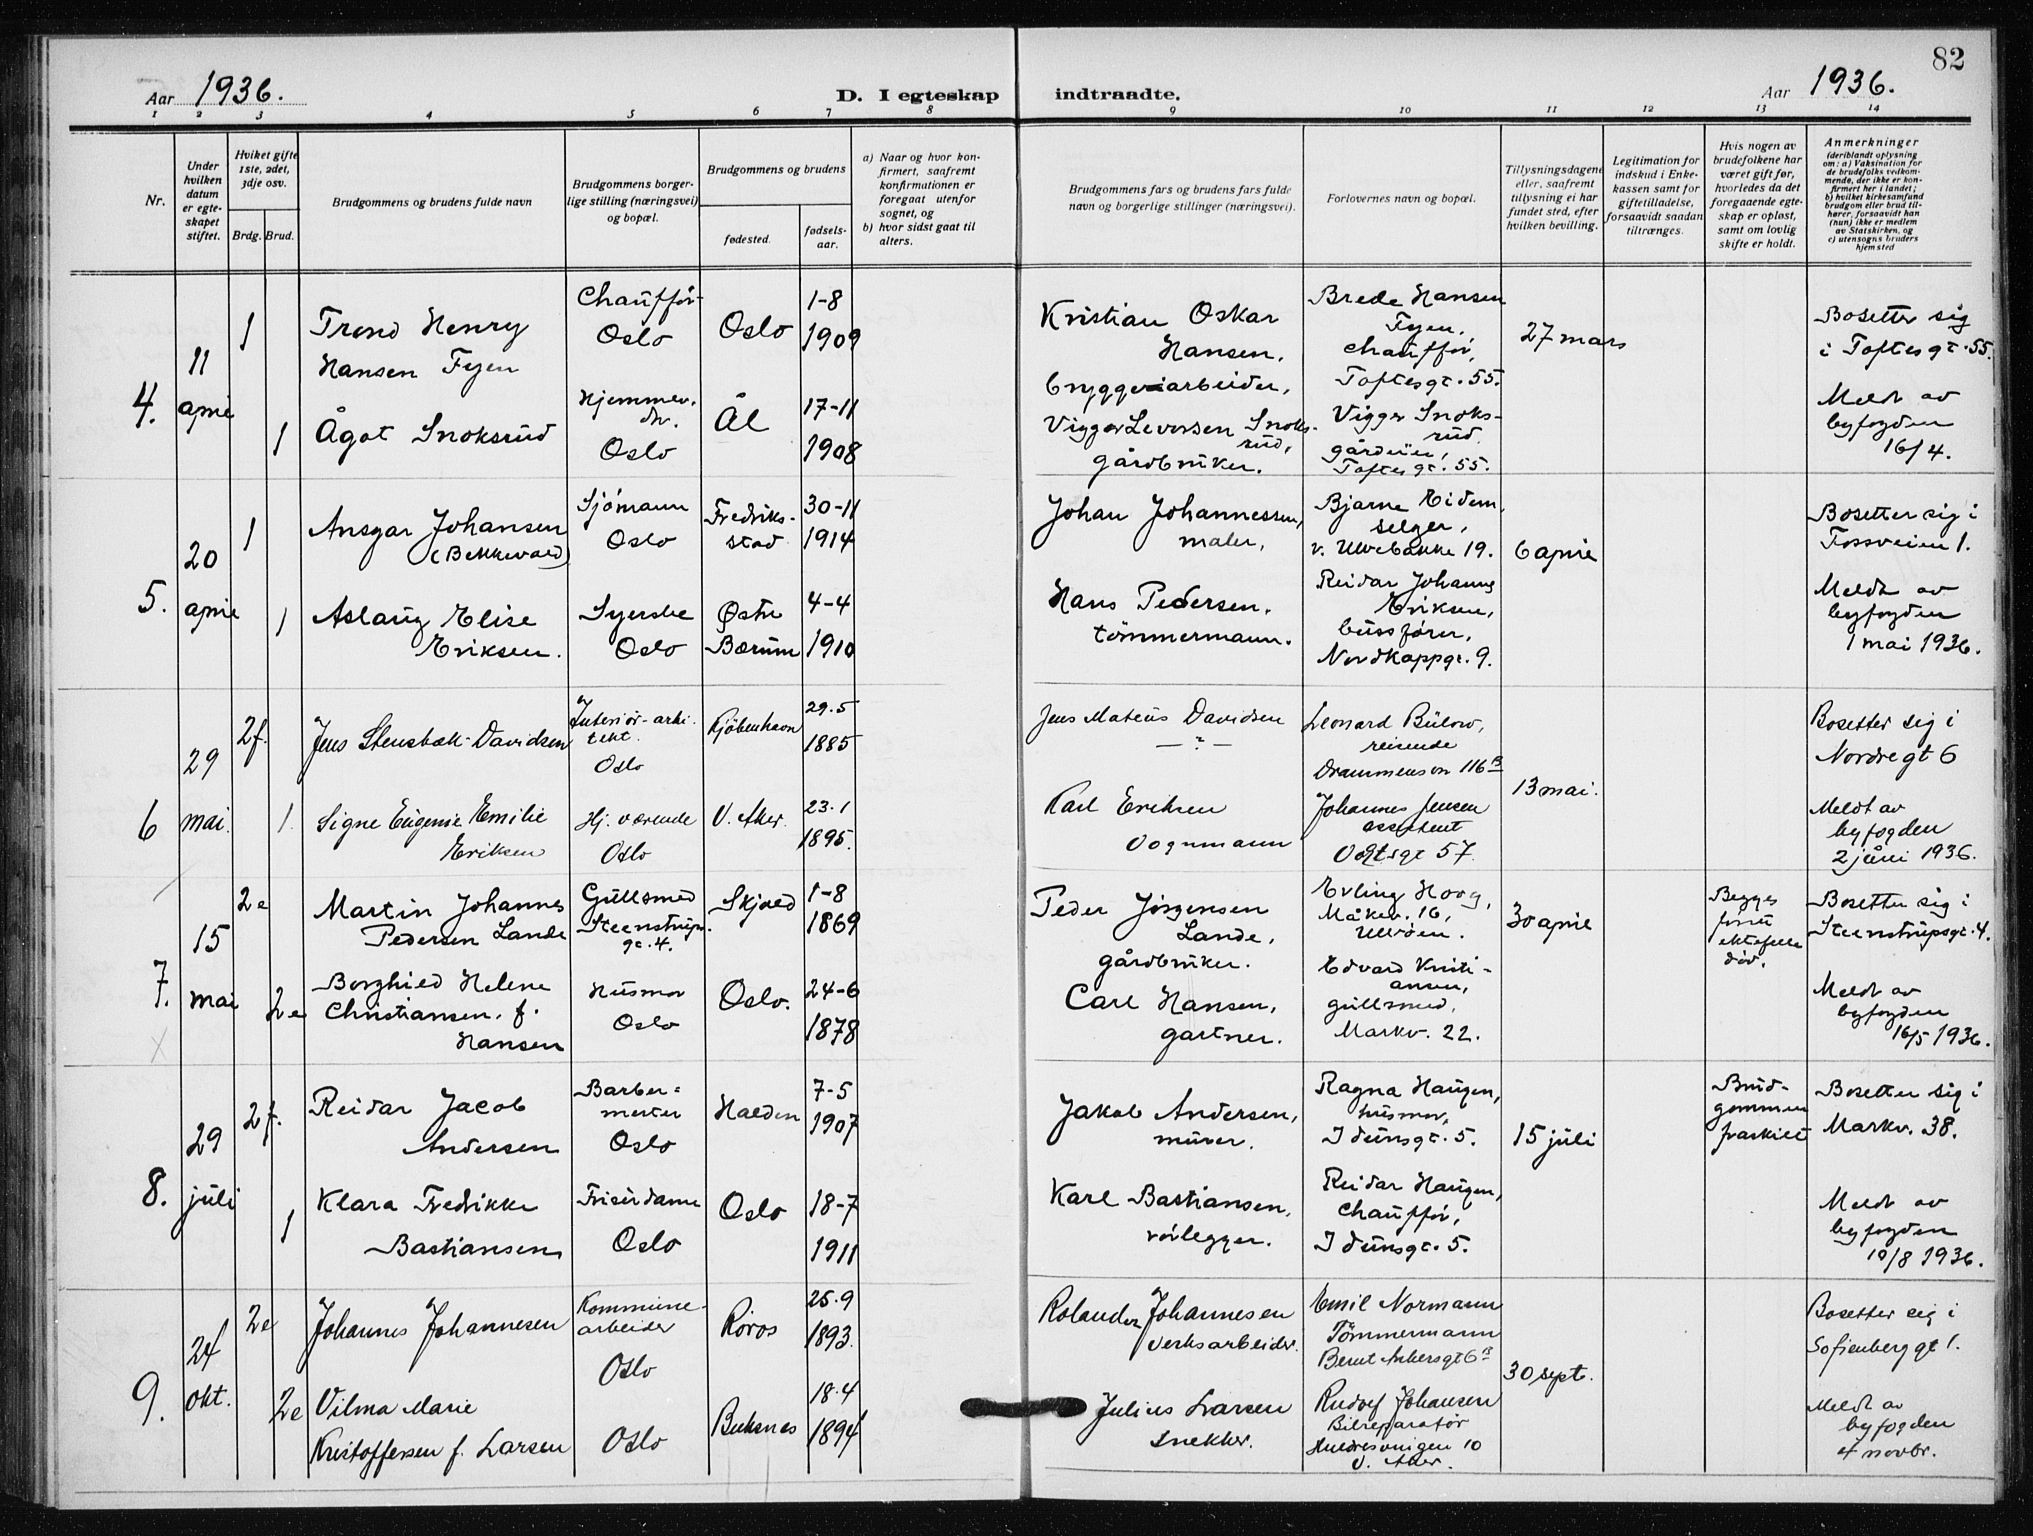 82
Aar 1936.
D. I egteskap indtraadte.
Aar 1936.
1 2 3 4 5 6 7 8 9 10 11 12 13 14
Nr.
Under hvilken datum er egte-skapet stiftet.
Hviket gifte 1ste, 2det, 3dje osv.
Brdg. Brud.
Brudgommens og brudens fulde navn
Brudgommens borger-lige stilling (næringsvei) og bopæl.
Brudgommens og brudens
fødested.
fødsels-aar.
a) Naar og hvor kon-firmert, saafremt konfirmationen er foregaat utenfor sognet, og
b) hvor sidst gaat til alters.
Brudgommens fars og brudens fars fulde navn og borgerlige stillinger (næringsvei).
Forlovernes navn og bopæl.
Tillysningsdagene eller, saafremt tillysning ei har fundet sted, efter hvilken bevilling.
Legitimation for indskud i Enke-kassen samt for giftetilladelse, forsaavidt saadan tiltrænges.
Hvis nogen av brudefolkene har været gift før, hvorledes da det foregaaende egte-skap er opløst, samt om lovlig skifte er holdt.
Anmerkninger
(deriblandt oplysning om: a) Vaksination for de brudefolks vedkom-mende, der ikke er kon-firmert her i landet; b) hvilket kirkesamfund brudgom eller brud til-hører, forsaavidt han (hun) ikke er medlem av Statskirken, og c) utensogns bruders hjemsted
4.
11
april
1
Trond Henry
Hansen Fyen
Chauffør
Oslo
Oslo
1-8
1909
1
Ågot Snoksrud
Hjemmev.
dr.
Oslo
Ål
17-11
1908
Kristian Oskar
Hansen,
bryggeriarbeider,
Viggo Leversen Snoks-
rud,
gårdbruker.
Brede Hansen
Fyen,
chauffør,
Toftesgt. 55.
Viggo Snoks-
rud
Toftesgt. 55.
27 mars
Bosetter sig
i Toftesgt. 55.
Meldt av
byfogden
16/4.
5.
20
april
1
Ansgar Johansen
(Bekkevold)
Sjømann
Oslo
Fredrik-
stad
30-11
1914
1
Aslaug Elise
Eriksen.
Syerske
Oslo
Østre
Bærum
4-4
1910
Johan Johannessen,
maler,
Hans Pedersen,
tømmermann.
Bjarne Eidem,
selger,
v. Ulvebakke 19.
Reidar Johannes
Eriksen,
bussfører,
Nordkappgt. 9.
6 april
Bosetter sig i
Fossveien 1.
Meldt av
byfogden
1 mai 1936.
6
29
mai.
2f.
Jens Stensbæk-Davidsen
Interiør-arki-
tekt.
Oslo
Kjøbenhavn
29.5
1885
1.
Signe Eugenie Emilie
Eriksen
Hj. værende
Oslo
V. Aker
23.1
1895.
Jens Mateus Davidsen
— ? —
Karl Eriksen
Vognmann
Leonard Bülow,
reisende
Drammensvn 116B
Johannes Jensen
assistent
Vogtsgt 57.
13 mai.
Bosetter sig i
Nordregt 6
Meldt av
byfogden
2 juni 1936.
7.
15
mai
2e
Martin Johannes
Pedersen Lande
Gullsmed
Steenstrups-
gt. 4.
Skjold
1-8
1869
2e
Borghild Helene
Christiansen, f.
Hansen
Husmor
Oslo
Oslo.
24-6
1878
Peder Jørgensen
Lande,
gårdbruker.
Carl Hansen,
gartner.
Erling Hoog,
Måkev. 16,
Ulvøen.
Edvard Kristi-
ansen,
gullsmed,
Markv. 22.
30 april
Begges
første
ektefelle
død.
Bosetter sig i
Steenstrupsgt. 4.
Meldt av
byfogden
16/5 1936.
8.
29
juli
2f.
Reidar Jacob
Andersen
Barber-
mester
Oslo
Halden
7-5
1907
1
Klara Fredrikke
Bastiansen
Frisørdame
Oslo
Oslo
18-7
1911
Jakob Andersen,
murer.
Karl Bastiansen,
rørlegger.
Ragna Haugen,
husmor,
Idunsgt. 5.
Reidar Haugen,
chauffør,
Idunsgt. 5.
15 juli
Brud-
gommen
fraskilt
Bosetter sig i
Markv. 38.
Meldt av
byfogden
10/8 1936.
9.
24
okt.
2e
Johannes Johannesen
Kommune-
arbeider
Oslo
Røros
25.9
1893.
2e
Vilma Marie
Kristoffersen f. Larsen
Oslo
Buksnes
18.4
1894
Rolander Johannesen
Verksarbeider.
Julius Larsen
Snekker.
Emil Normann
Tømmermann
Bernt Ankersgt 6B
Rudolf Johansen
Bilreparatør
Huldresvingen 10
V. Aker.
30 sept.
Bosetter sig i
Sofienberggt 1.
Meldt av
byfogden
4 novbr.